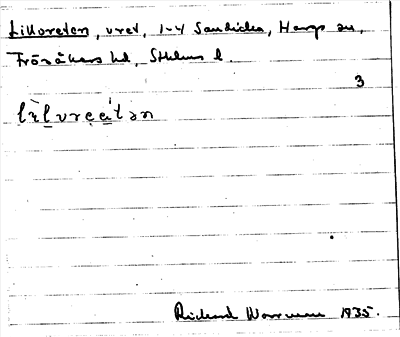 Lilloreten, vret, 1-4 Sandika, Hargs sn,
Frösåkers hd, Sthlms l.
3
lìlvreatən
Richard 1935.